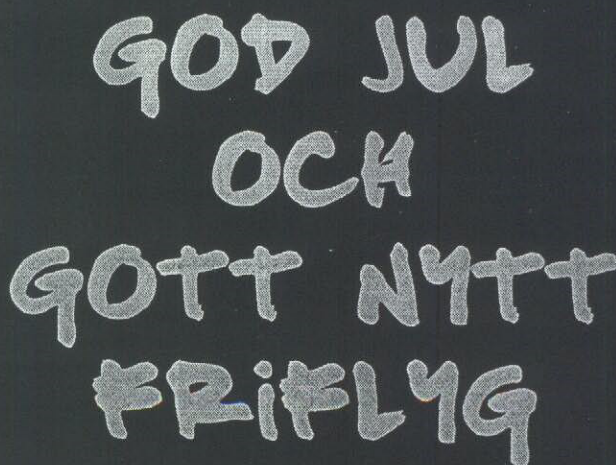 GOD JUL
OCH
GOTT NYTT
FRiFLYG